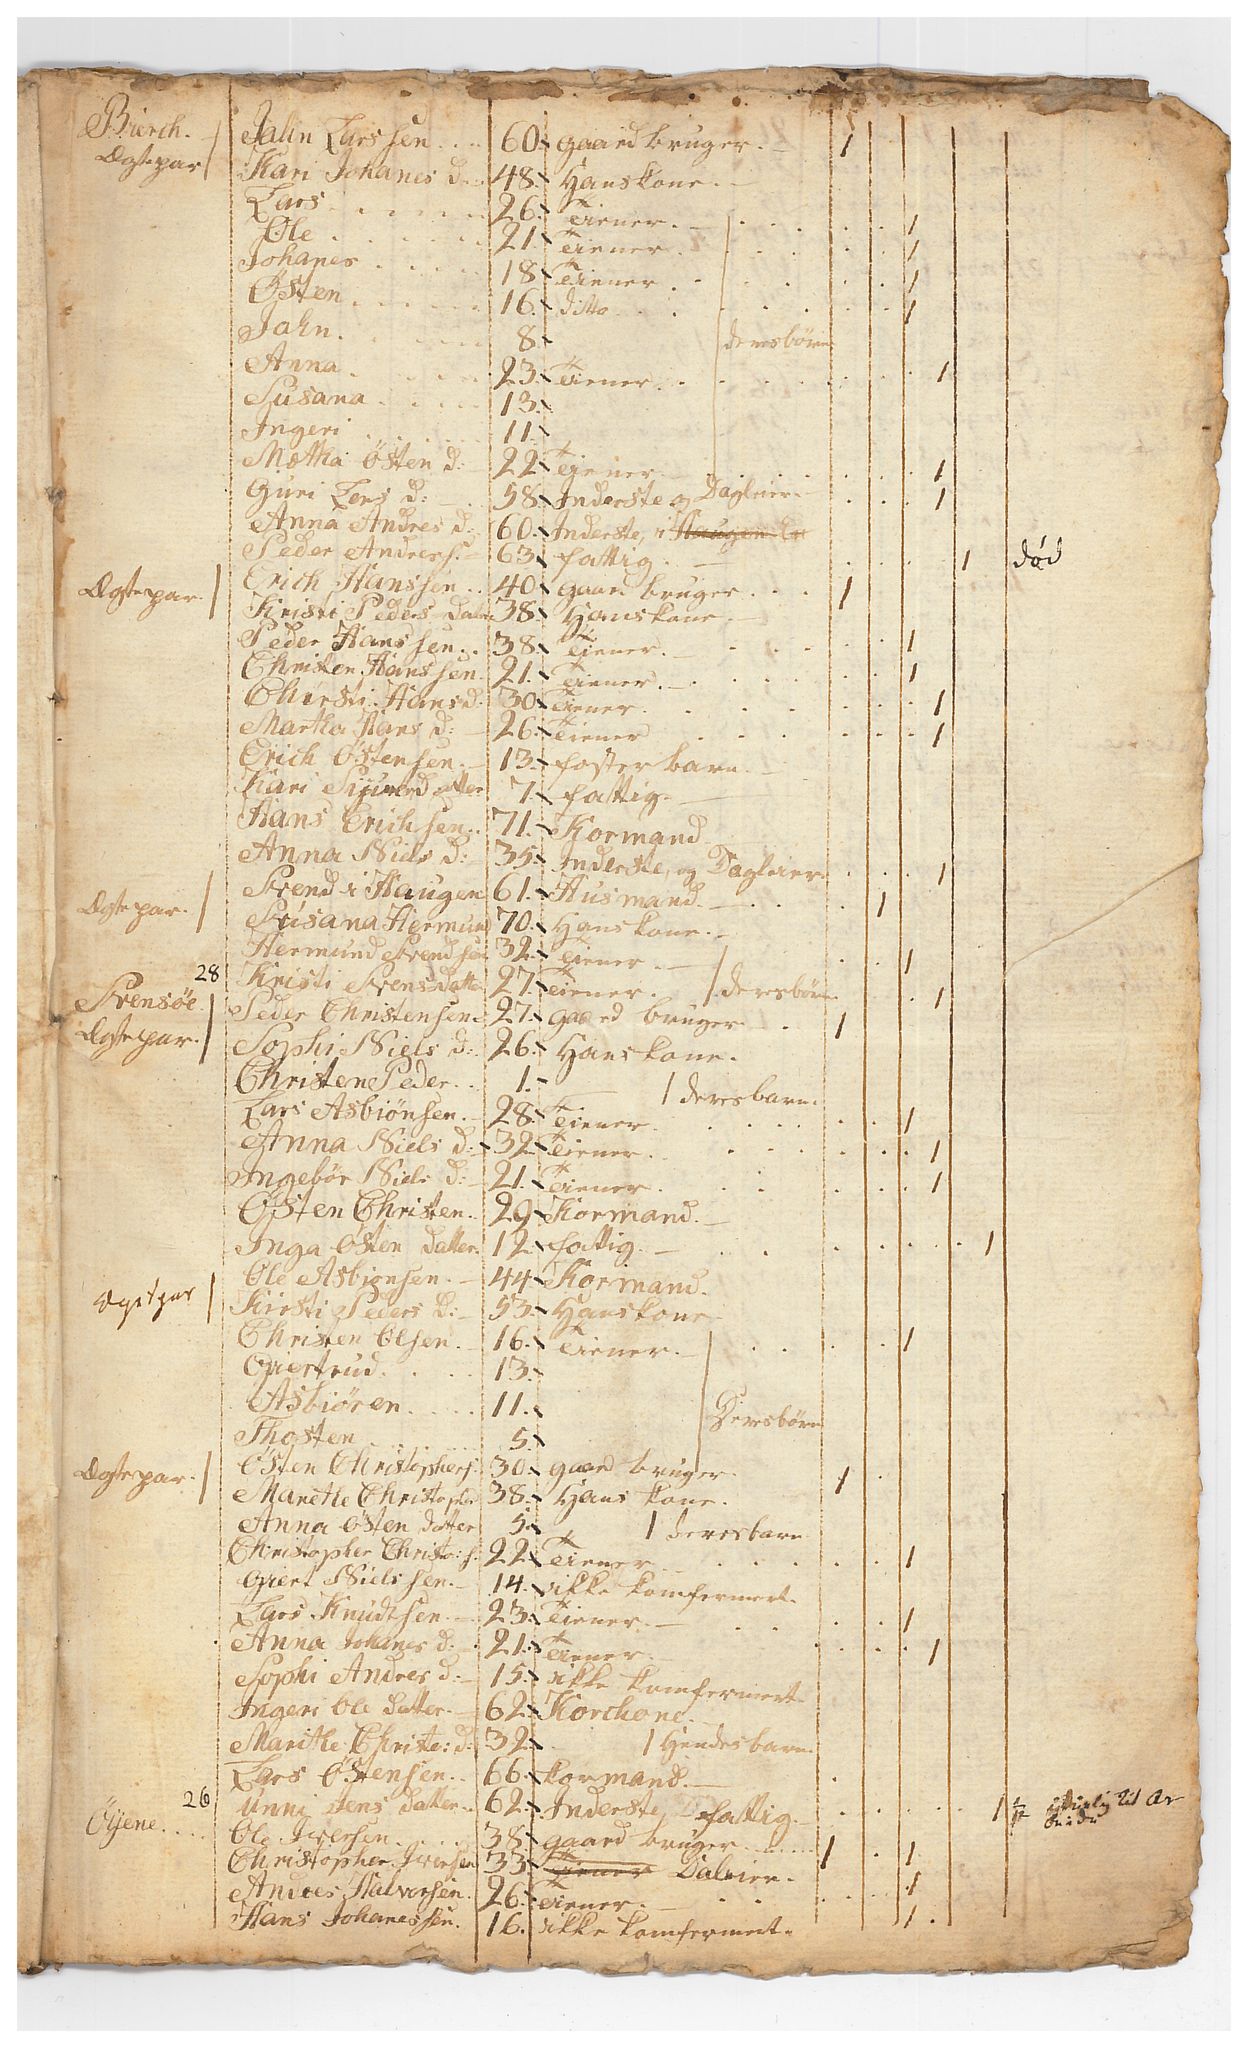 Bierch. Jahn Larssen 60 gaard bruger. 1
Ægtepar Kari Johanes d. 48. Hans kone.
Lars 26. Tiener. 1
Ole 21. Tiener. 1
Johanes 18 Tiener. 1
Østen 16. ditto 1
Jahn. 8. deres børn
Anna 23. Tiener. 1
Susana 13.
Ingeri 11.
Mætha Østen d: 22 Tiener 1
Guri Lars d: 58 Inderste og Dagleier. 1
Anna Andres d. 60. Inderste, i Haugen
Peder Anders 63 fattig. 1 død
Ægtepar. Erich Hanssen 40 gaard bruger 1
Kristi Peders datter 38 Hans kone.
Peder Hanssen. 38. Tiener. 1
Christen Hanssen. 21. Tiener. 1
Chirsti Hans d. 30 Tiener. 1
Martha Hans d: 26. Tiener 1
Erich Østensen. 13. foster barn
Kari Siuerd datter 7. fattig.
Hans Erichsen. 71. Kormand
Anna Niels d: 35. Inderste, og Dagleier. 1
Ægtepar. Svend i Haugen 61. Husmand. 1
Susana Hermund 70. Hans kone.
Hermund Svendsen 32. Tiener 1
28 Kristi Svens datter 27. Tiener. deres børn 1
Svensøe. Peder Christensen 27. gaard bruger 1
Ægtepar. Sophi Niels d: 26. Hans kone.
Christen Peder 1. deres barn.
Lars Asbiønsen. 28. Tiener. 1
Anna Niels d: 32 Tiener. 1
Ingebør Niels d: 21. Tiener. 1
Østen Christen. 29 Kormand.
Inga Østen datter 12. fattig. 1
Ole Asbionsen. 44 Kormand.
Ægtepar Kirsti Peders d: 53. Hans kone
Christen Olsen. 16. Tiener. 1
Giertrud. 13.
Asbiøren 11.
Thosten 5. Deres børn
Ægtepar. Østen Christophers. 30. gaard bruger. 1
Marethe Christopher 38. Hans kone.
Anna Østen datter 5. deres barn
Christopher Christo:s. 22. Tiener 1
Giert Nielssen. 14. ikke komfermert.
Lars Knudtsen. 23. Tiener. 1
Anna Johanes d. 21. Tiener. 1
Sophi Andres d: 15. ikke komfermert.
Ingeri Ole datter. 62. Korchone
Marithe Christe: d: 32. Hendes barn.
Lars Østensen. 66. Kormand.
26 Unni Jens datter. 62. Inderste, fattig. 1
Øyene. Ole Iversen. 38. gaard bruger 1 1
Christopher Iversen 33. Tiener Daleier.
Andres Halvorsen. 26. Tiener. 1
Hans Johanessen. 16. ikke komfermert. 1